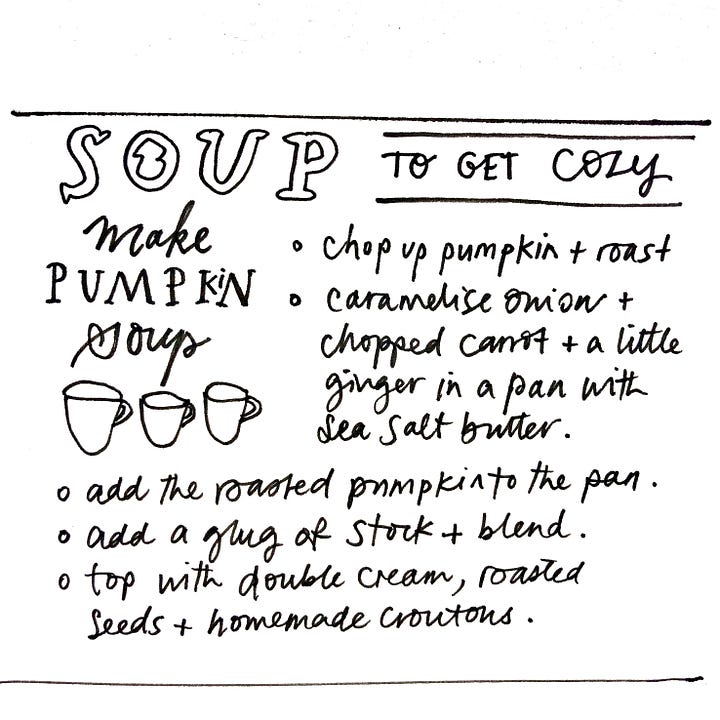 SOUP TO GET COZY
make
PUMPKiN
soup
o chop up pumpkin + roast
o caramelise onion +
chopped carrot + a little
ginger in a pan with
sea salt butter.
o add the roasted pumpkin to the pan.
o add a glug of stock + blend.
o top with double cream, roasted
seeds + homemade croutons.